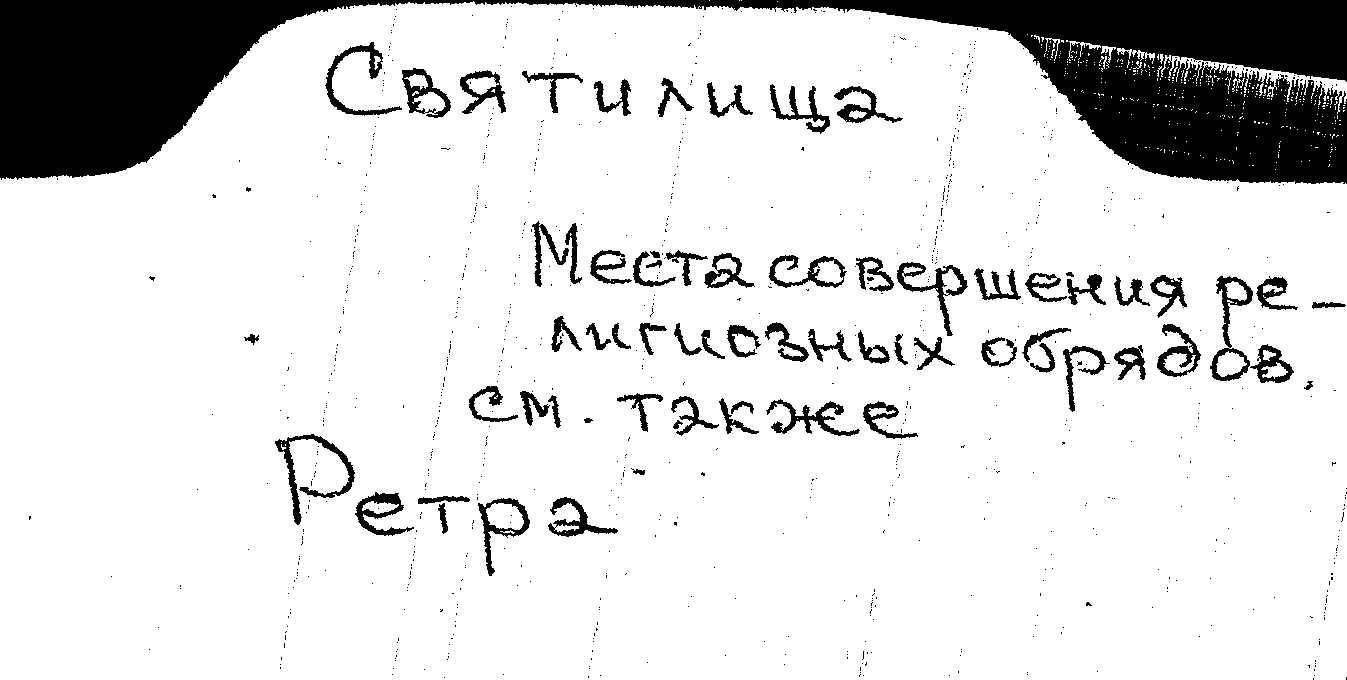 Святилища
Места совершения ре-
лигиозных обрядов.
см. также
Ретра